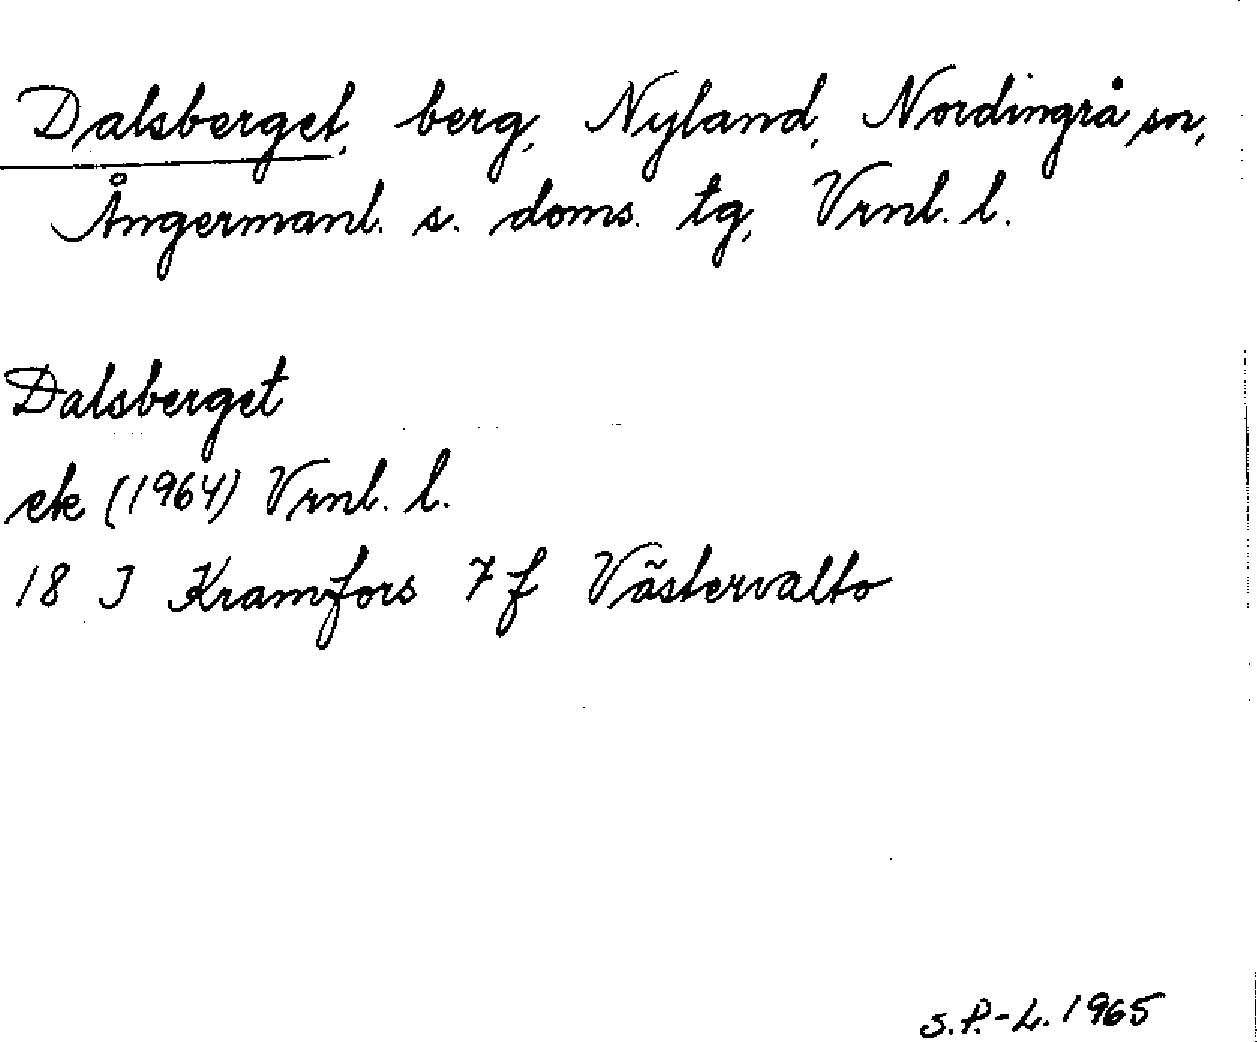 Dalsberget, berg, Nyland, Nordingrå sn,
Ångermanl. s. doms. tg, Vrnl. l.
Dalsberget
ek (1964) Vrnl. l.
18 J Kramfors 7 f Västervalto
S.P.-L. 1965